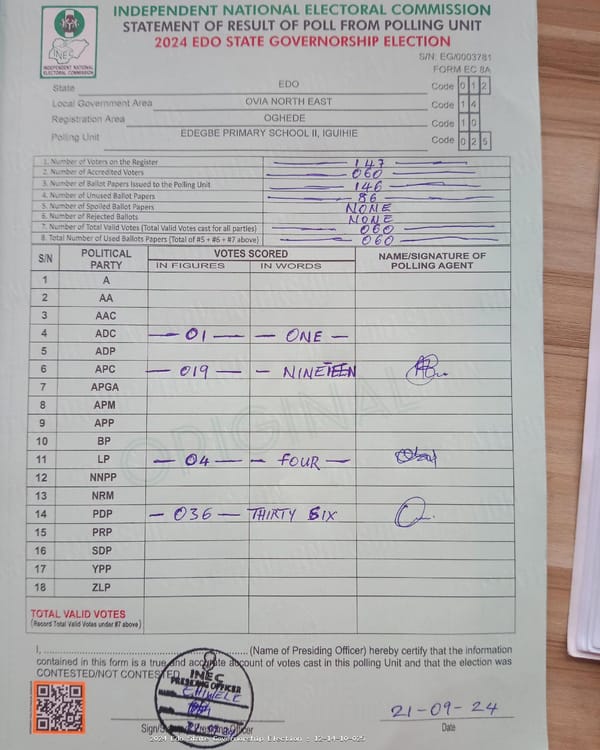 INDEPENDENT NATIONAL ELECTORAL COMMISSION
STATEMENT OF RESULT OF POLL FROM POLLING UNIT
2024 EDO STATE GOVERNORSHIP ELECTION
INEC
INDEPENDENT NATIONAL ELECTORAL COMMISSION
S/N: EG/0003781
FORM EC 8A
State EDO Code 0 1 2
Local Government Area OVIA NORTH EAST Code 1 4
Registration Area OGHEDE Code 1 0
Polling Unit EDEGBE PRIMARY SCHOOL II, IGUIHIE Code 0 2 5
1. Number of Voters on the Register 147
2. Number of Accredited Voters 060
3. Number of Ballot Papers Issued to the Polling Unit 146
4. Number of Unused Ballot Papers 86
5. Number of Spoiled Ballot Papers NONE
6. Number of Rejected Ballots NONE
7. Number of Total Valid Votes (Total Valid Votes cast for all parties) 060
8. Total Number of Used Ballots Papers (Total of #5 + #6 + #7 above) 060
S/N POLITICAL PARTY VOTES SCORED NAME/SIGNATURE OF POLLING AGENT
IN FIGURES IN WORDS
1 A
2 AA
3 AAC
4 ADC — 01 — — ONE —
5 ADP
6 APC — 019 — — NINETEEN
7 APGA
8 APM
9 APP
10 BP
11 LP — 04 — — FOUR —
12 NNPP
13 NRM
14 PDP — 036 — THIRTY SIX
15 PRP
16 SDP
17 YPP
18 ZLP
ORIGINAL
TOTAL VALID VOTES
(Record Total Valid Votes under #7 above)
I, .......... (Name of Presiding Officer) hereby certify that the information
contained in this form is a true and accurate account of votes cast in this polling Unit and that the election was
CONTESTED/NOT CONTESTED
INEC
PRESIDING OFFICER
21-09-24
Date
2024 Edo State Governorship Election - 12-14-10-025